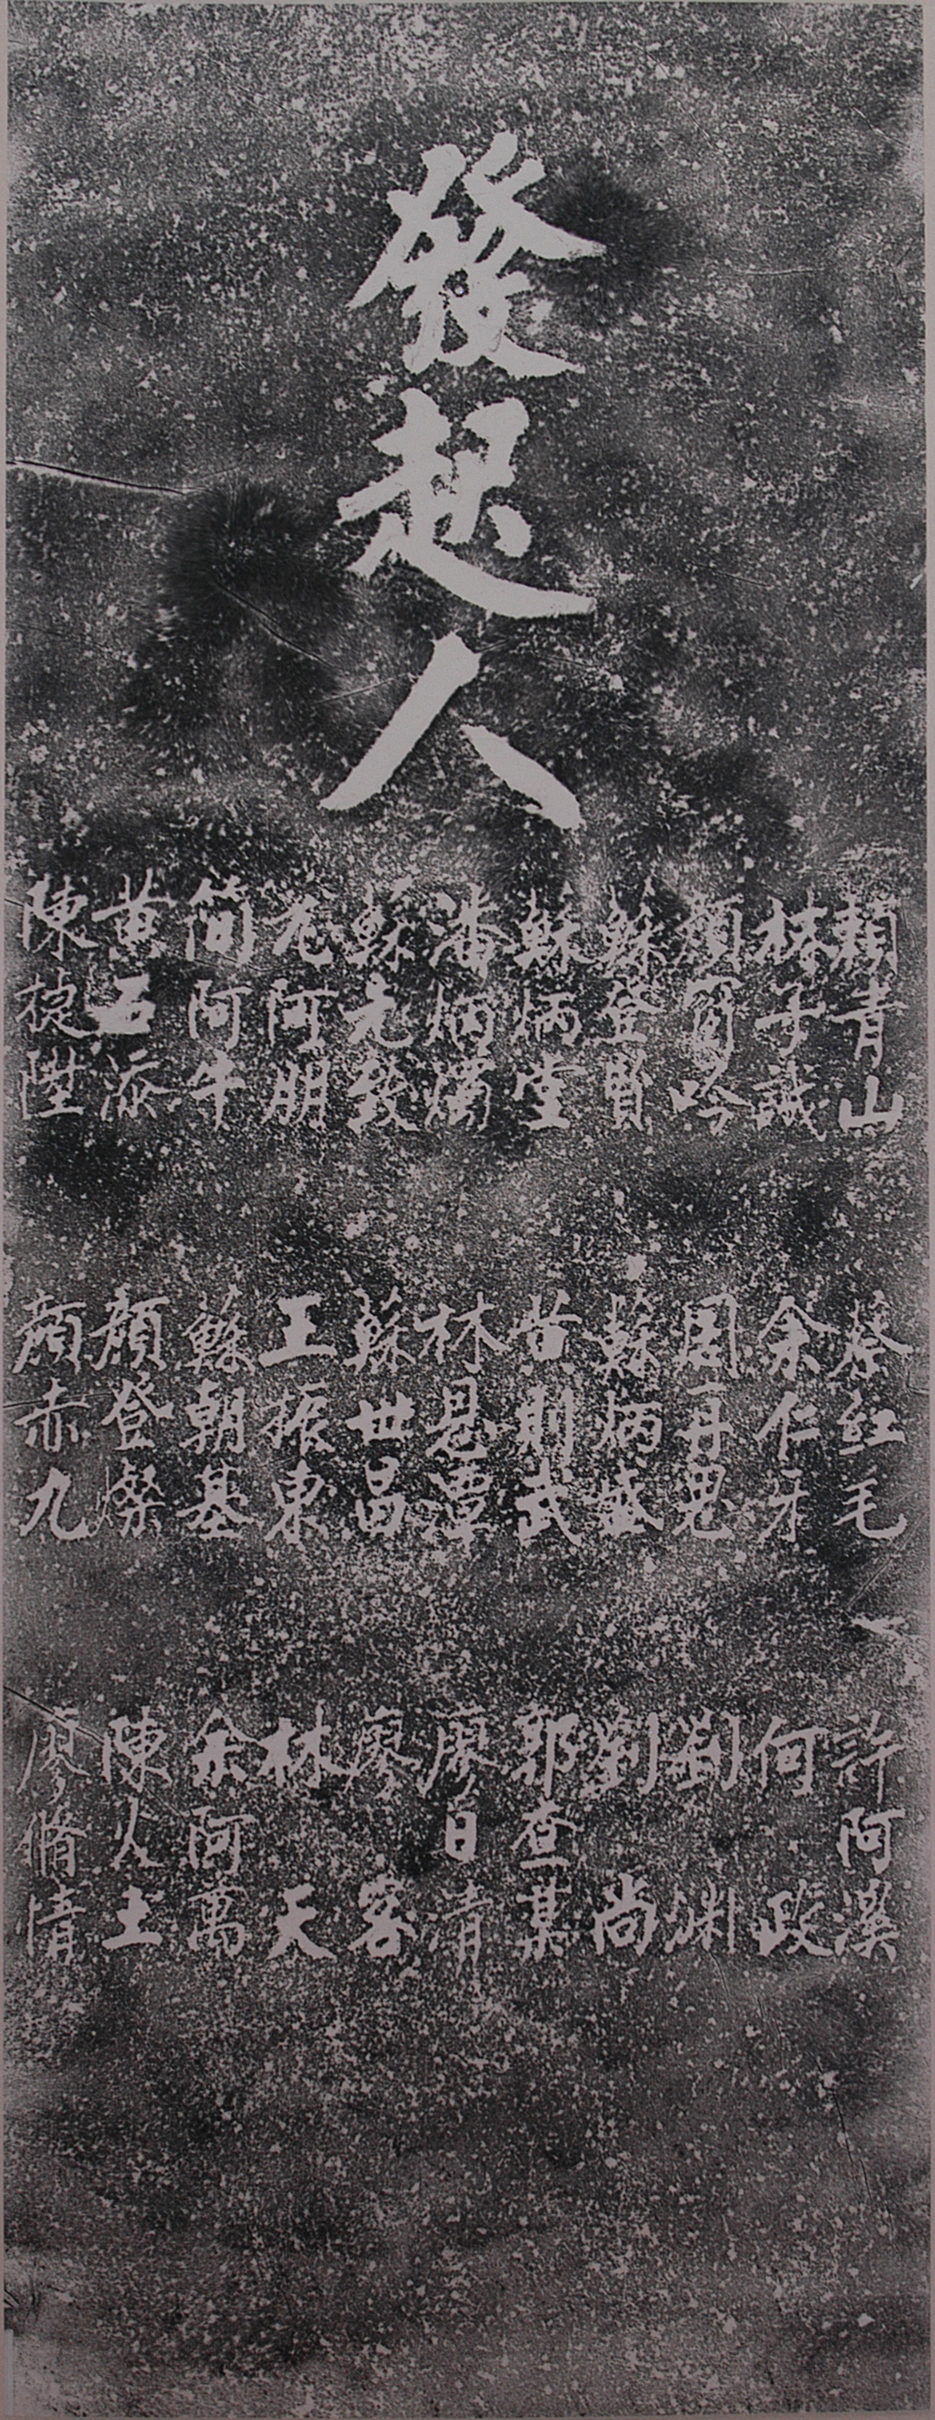 發起人
賴青山
林子誠
顏窗吟
蘇登貿
蘇炳堂
潘炳燭
蘇元發
尤阿朋
簡阿牛
黃石添
陳㨗陞
蔡紅毛
余仁牙
周再思
蘇炳盛
黃則武
林思潭
蘇世昌
王振東
蘇朝基
顏登燦
顏赤九
許阿漢
何政
劉淵
劉尚
郭查某
廖日清
廖客
林天
余阿萬
陳人土
廖脩情